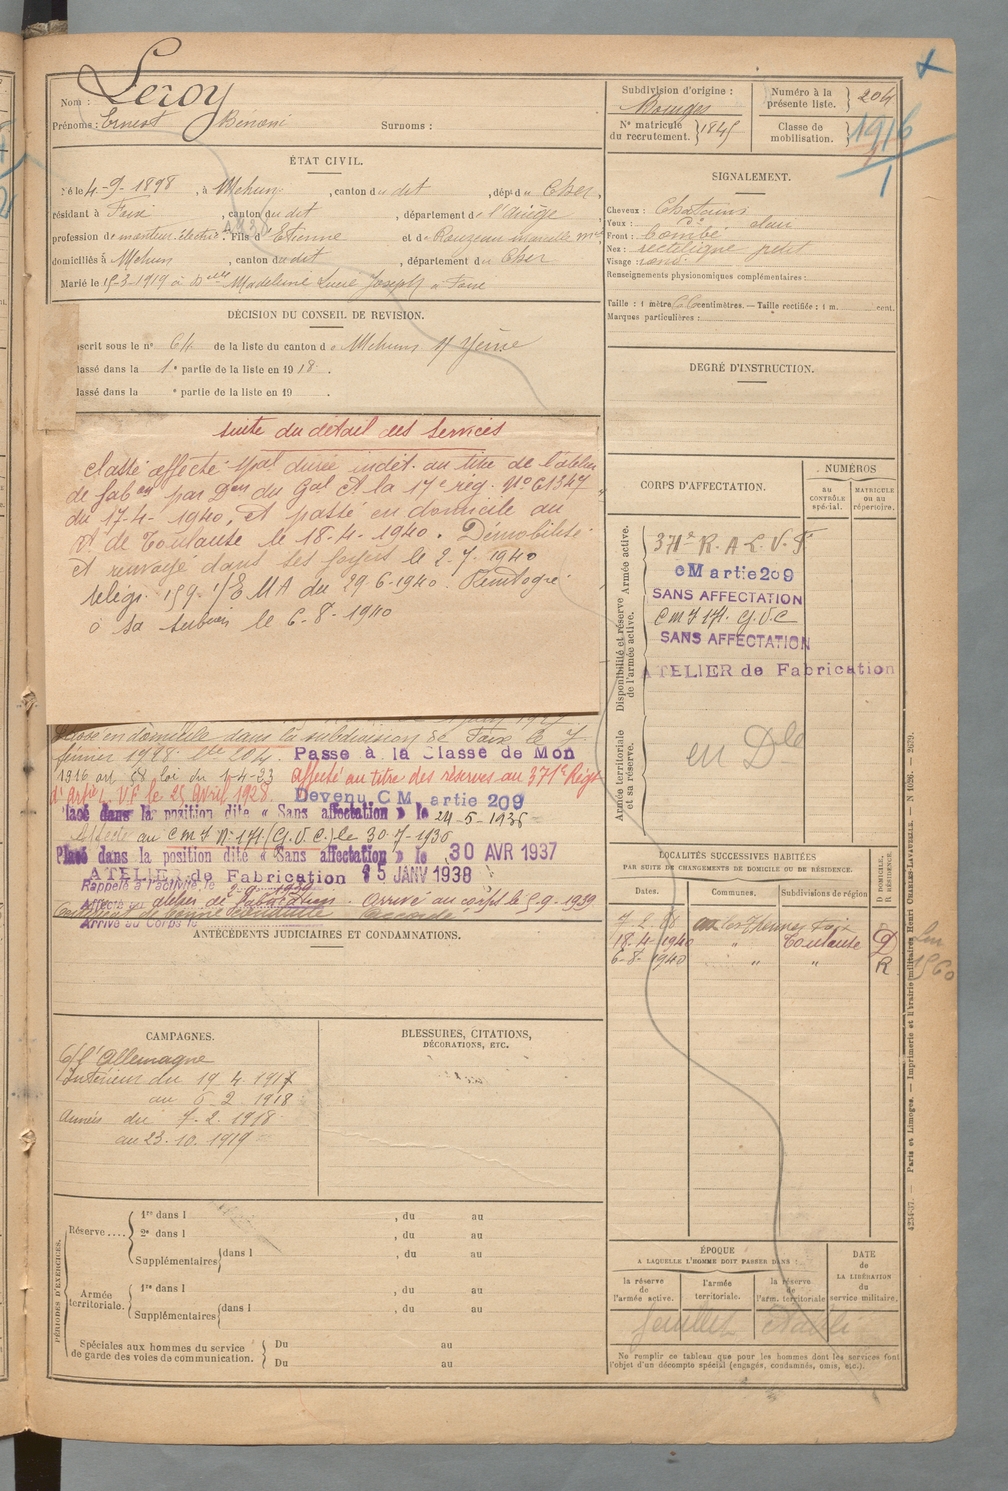 Nom : Leroy
Prénoms : Ernest Bénoni Surnoms :
ÉTAT CIVIL.
Né le 4-9-1898, à Mehun, canton du dit, dépt du Cher,
résidant à Foix, canton du dit, département de l'Ariège
profession de monteur électric. Fils d'Etienne et de Rouzeau
domiciliés à Mehun, canton du dit, département du Cher
Marié le 15-3-1919 à Delle Madeleine Lucie Joseph à Foix
DÉCISION DU CONSEIL DE REVISION.
nscrit sous le no 64 de la liste du canton de Mehun s/ Yèvre
lassé dans la 1e partie de la liste en 1918.
lassé dans la e partie de la liste en 19 .
suite du détail des services
classé affecté spal durée indét. au titre de l'atelier
de fabon par Don du Gal Ct la 17e rég. No 61347
du 17-4-1940, et passé en domicile au
de Toulouse le 18-4-1940. Démobilisé
et renvoyé dans ses foyers le 2-7-1940
télégr. 159 1/E M A du 29-6-1940. Réintégré
à sa subion le 6-8-1940
Passé en domicile dans la subdivision de Foix le 7
février 1928. No 204. Passé à la Classe de Mon
1916 art 58 loi du 1-4-23 Affecté au titre des réserves au 371e Régt
d'Artie L.V.F le 25 Avril 1928. Devenu C M artie 209
lacé dans la position dite « Sans affectation » le 24-5-1935
Affecté au C m I No 171 (G.V.C.) le 30-7-1936
Placé dans la position dite « Sans affectation » le 30 AVR 1937
ATELIER de Fabrication 15 JANV 1938
Rappelé à l'activité, le 2-9-1939
Affecté atelier de fabrication. Arrivé au corps le 5-9-1939
Certificat de bonne conduite Accordé
Arrivé au Corps le
ANTÉCÉDENTS JUDICIAIRES ET CONDAMNATIONS.
CAMPAGNES.
C/ l'Allemagne
Intérieur du 19 4. 1917
au 6 2 1918
Armées du 7. 2. 1918
au 23. 10. 1919
BLESSURES, CITATIONS,
DÉCORATIONS, ETC.
PÉRIODES D'EXERCICES.
Réserve....
1re dans l , du au
2e dans l , du au
Supplémentaires dans l , du au
Armée territoriale.
1re dans l , du au
Supplémentaires dans l , du au
Spéciales aux hommes du service
de garde des voies de communication.
Du au
Du au
Subdivision d'origine :
Bourges
No matricule
du recrutement. 1845
Numéro à la
présente liste. 204
Classe de
mobilisation. 1916
1
SIGNALEMENT.
Cheveux : Chatains
Yeux : clair
Front : bombé
Nez : rectiligne petit
Visage : rond
Renseignements physionomiques complémentaires :
Taille : 1 mètre 66 centimètres. — Taille rectifiée : 1 m. cent.
Marques particulières :
DEGRÉ D'INSTRUCTION.
CORPS D'AFFECTATION.
NUMÉROS
AU
CONTRÔLE
spécial.
MATRICULE
ou au
répertoire.
Armée active.
Disponibilité et réserve
de l'armée active.
Armée territoriale
et sa réserve.
371e R. A L. V. F
C M artie 209
SANS AFFECTATION
C m I 171. G.V.C
SANS AFFECTATION
ATELIER de Fabrication
en Dle
LOCALITÉS SUCCESSIVES HABITÉES
PAR SUITE DE CHANGEMENTS DE DOMICILE OU DE RÉSIDENCE.
Dates. Communes. Subdivisions de région
D DOMICILE,
R RÉSIDENCE.
7-2-28 Foix D
18-4-1940 " Toulouse
6-8-1940 " " R
ÉPOQUE
A LAQUELLE L'HOMME DOIT PASSER DANS :
la réserve
de
l'armée active.
l'armée
territoriale.
la réserve
de
l'arm. territoriale
DATE
de
LA LIBÉRATION
du
service militaire.
Ne remplir ce tableau que pour les hommes dont les services font
l'objet d'un décompte spécial (engagés, condamnés, omis, etc.).
4234-37. — Paris et Limoges. — Imprimerie et librairie militaires Henri CHARLES-LAVAUZELLE. — N 1026. — 2679.